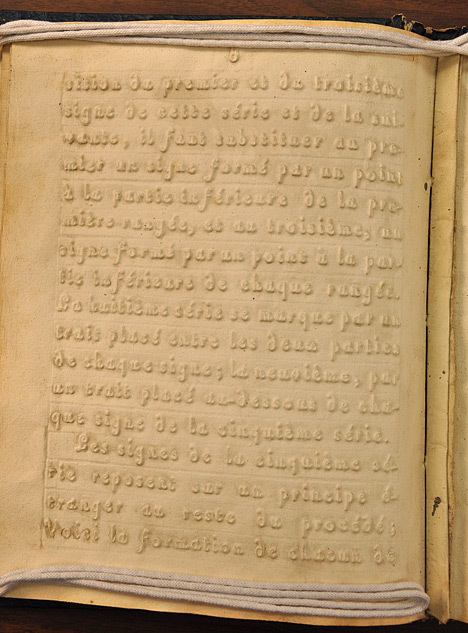 6
sition du premier et du troisième
signe de cette série et de la sui-
vante, il faut substituer au pre-
mier un signe formé par un point
à la partie inférieure de la pre-
mière rangée, et au troisième, un
signe formé par un point à la par-
tie inférieure de chaque rangée.
La huitième série se marque par un
trait placé entre les deux parties
de chaque signe; la neuvième, par
un trait placé au-dessous de cha-
que signe de la cinquième série.
Les signes de la cinquième sé-
rie reposent sur un principe é-
tranger au reste du procédé;
Voici la formation de chacun de